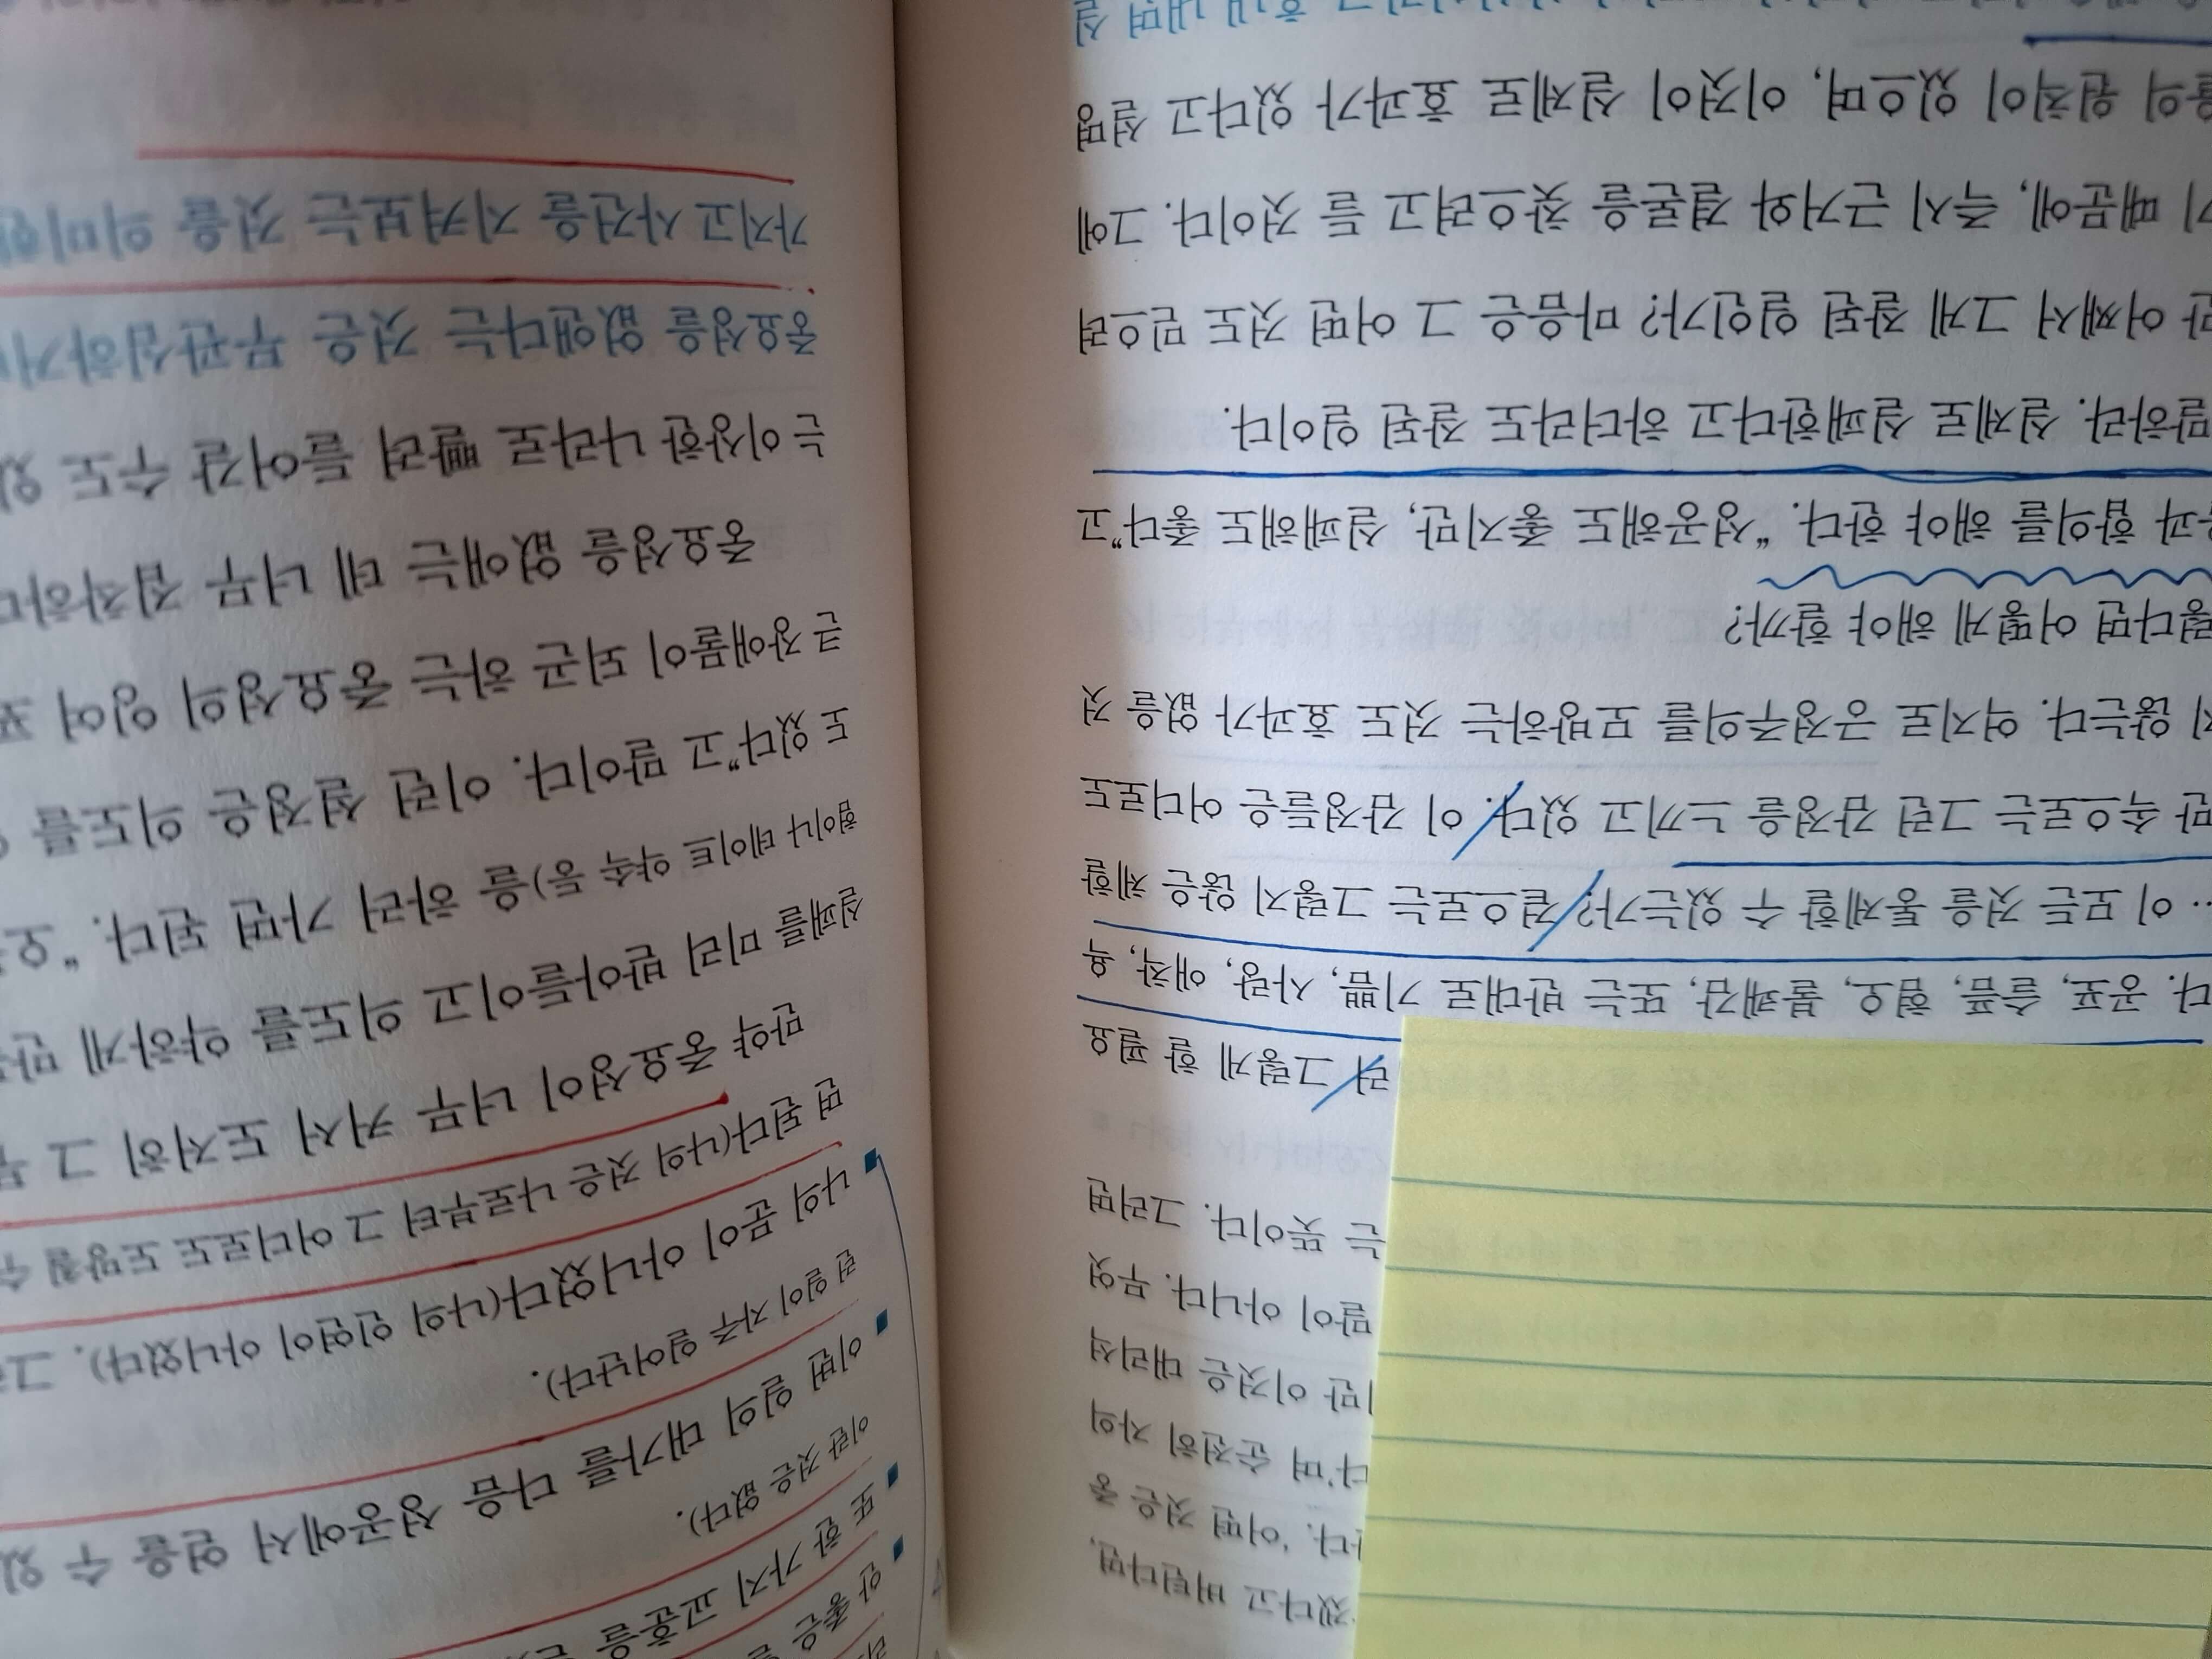 겠다고 버틴다면,
다. '어떤 것은 중
다'며 순전히 자의
만 이것은 대리석
말이 아니다. 무엇
는 뜻이다. 그러면
러 그렇게 할 필요
다. 공포, 슬픔, 혐오, 불쾌감, 또는 반대로 기쁨, 사랑, 애착, 욕
… 이 모든 것을 통제할 수 있는가? 겉으로는 그렇지 않은 체할
만 속으로는 그런 감정을 느끼고 있다. 이 감정들은 어디로도
지 않는다. 억지로 긍정주의를 모방하는 것도 효과가 없을 것
렇다면 어떻게 해야 할까?
과 합의를 해야 한다. “성공해도 좋지만, 실패해도 좋다”고
말하라. 실제로 실패한다고 하더라도 잘된 일이다.
만 어째서 그게 잘된 일인가? 마음은 그 어떤 것도 믿으려
기 때문에, 즉시 근거와 결론을 찾으려고 들 것이다. 그에
의 원칙이 있으며, 이것이 실제로 효과가 있다고 설명
내면 실
안 좋은
또 한 가지 교훈을
이란 것은 없다).
이번 일의 대가를 다음 성공에서 얻을 수 있
런 일이 자주 일어난다).
나의 문이 아니었다(나의 인연이 아니었다). 그
면 된다(나의 것은 나로부터 그 어디로도 도망칠 수
만약 중요성이 너무 커서 도저히 그
실패를 미리 받아들이고 의도를 약하게 만
험이나 데이트 약속 등)을 하러 가면 된다. “오
도 있다”고 말이다. 이런 설정은 의도를
큰 장애물이 되곤 하는 중요성의 잉여 포
중요성을 없애는 데 너무 집착하다
는 이상한 나라로 빨려 들어갈 수도 있
중요성을 없앤다는 것은 무관심하거나
가지고 사건을 지켜보는 것을 의미한